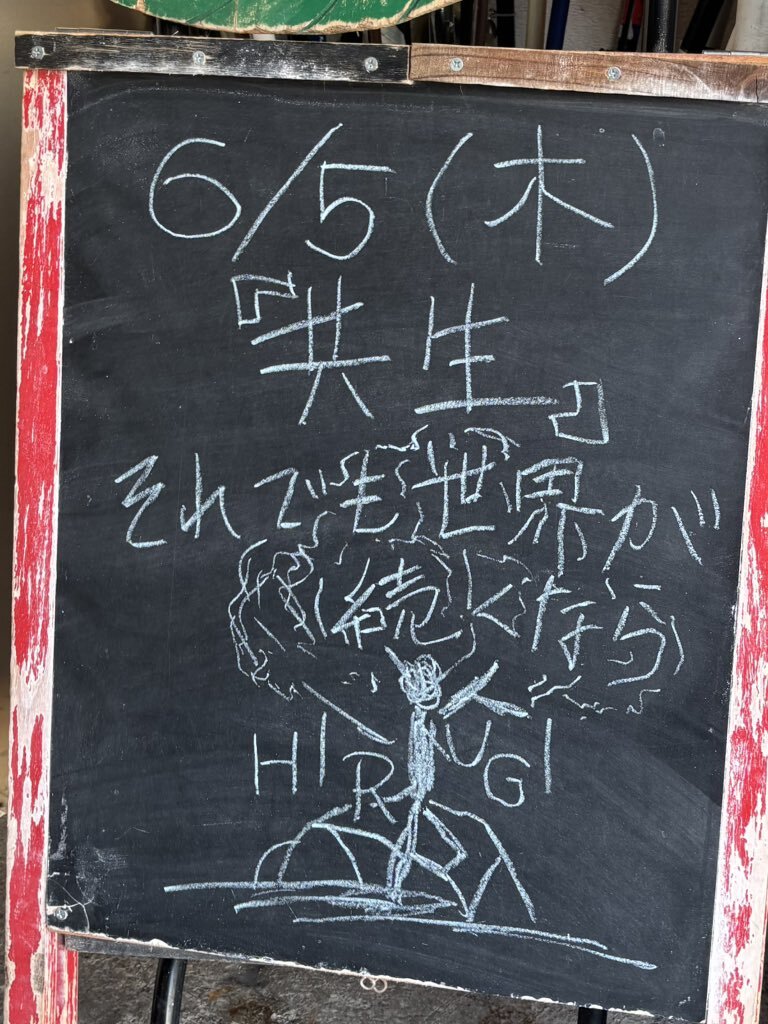 6/5(木)
『共生』
それでも世界が
続くなら
HIRUGI